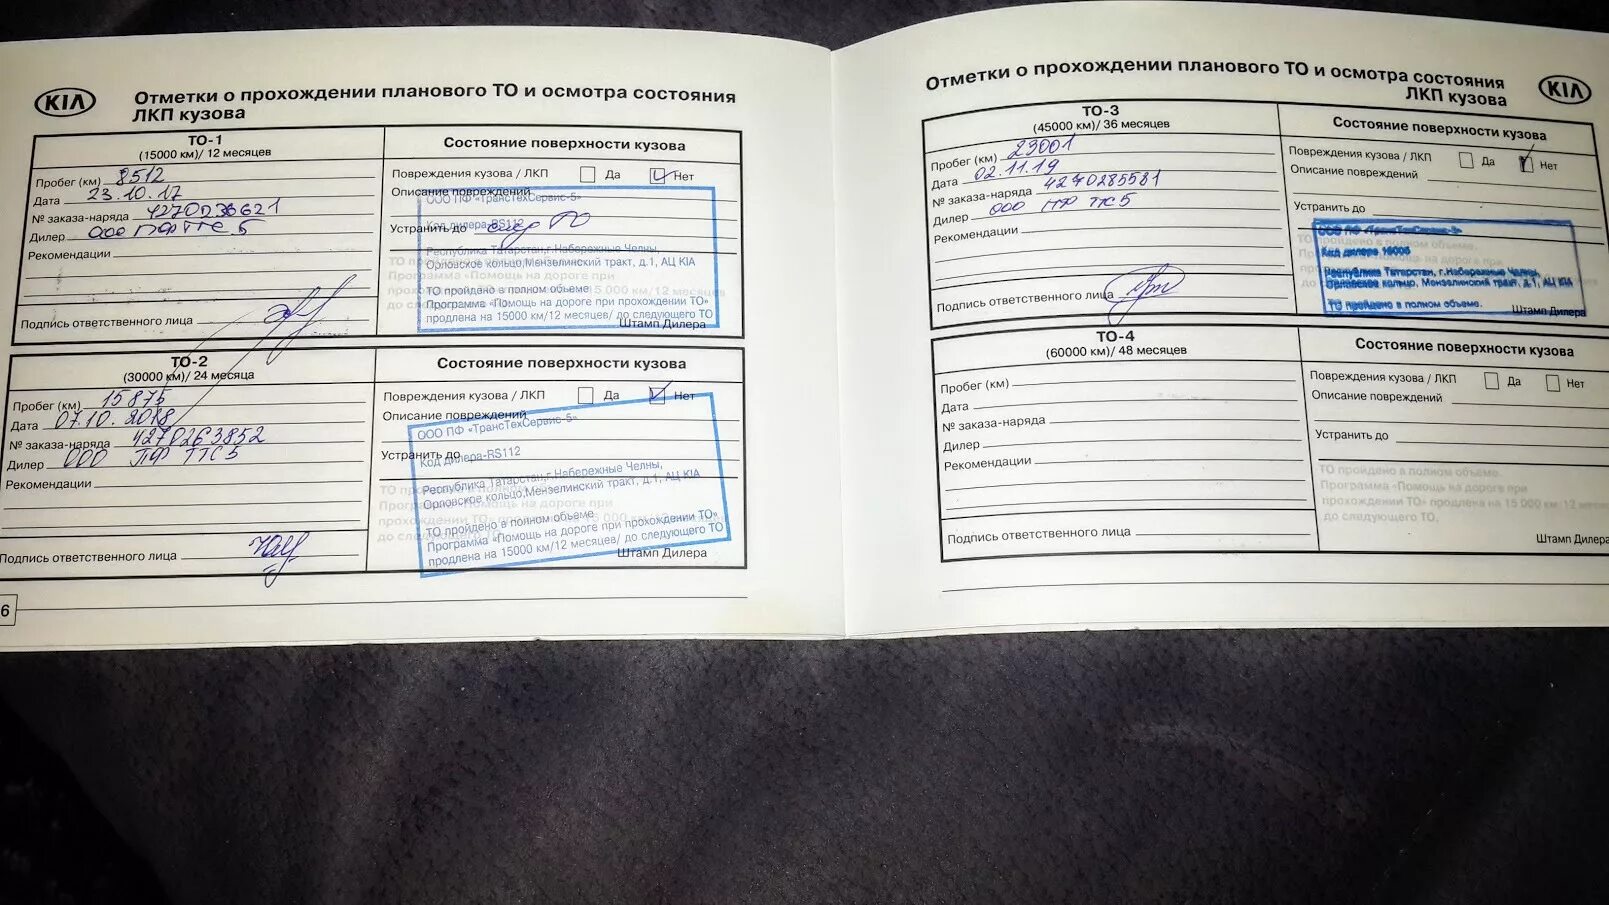 KIA
Отметки о прохождении планового ТО и осмотра состояния
ЛКП кузова
ТО-1
(15000 км)/ 12 месяцев
Состояние поверхности кузова
Пробег (км) 8512
Дата 23.10.17
№ заказа-наряда 4270236621
Дилер ООО ПФ ТТС 5
Рекомендации
Подпись ответственного лица
Повреждения кузова / ЛКП Да Нет
Описание повреждений
Устранить до
ООО ПФ «ТрансТехСервис-5»
Код дилера-RS112
Республика Татарстан,г.Набережные Челны,
Орловское кольцо,Мензелинский тракт, д.1, АЦ KIA
ТО пройдено в полном объеме
Программа «Помощь на дороге при прохождении ТО»
продлена на 15000 км/12 месяцев/ до следующего ТО
Штамп Дилера
ТО-2
(30000 км)/ 24 месяца
Состояние поверхности кузова
Пробег (км) 15875
Дата 07.10.2018
№ заказа-наряда 4270263852
Дилер ООО ПФ ТТС5
Рекомендации
Подпись ответственного лица
Повреждения кузова / ЛКП Да Нет
Описание повреждений
Устранить до
ООО ПФ «ТрансТехСервис-5»
Код дилера-RS112
Республика Татарстан,г.Набережные Челны,
Орловское кольцо,Мензелинский тракт, д.1, АЦ KIA
ТО пройдено в полном объеме
Программа «Помощь на дороге при прохождении ТО»
продлена на 15000 км/12 месяцев/ до следующего ТО
Штамп Дилера
6
Отметки о прохождении планового ТО и осмотра состояния
ЛКП кузова
KIA
ТО-3
(45000 км)/ 36 месяцев
Состояние поверхности кузова
Пробег (км) 29001
Дата 02.11.19
№ заказа-наряда 4270285581
Дилер ООО ПФ ТТС5
Рекомендации
Подпись ответственного лица
Повреждения кузова / ЛКП Да Нет
Описание повреждений
Устранить до
ООО ПФ «ТрансТехСервис-
Код дилера
Республика Татарстан, г.Набережные Челны,
Орловское кольцо, Мензелинский тракт, д.1, АЦ KIA
ТО пройдено в полном объеме.
Штамп Дилера
ТО-4
(60000 км)/ 48 месяцев
Состояние поверхности кузова
Пробег (км)
Дата
№ заказа-наряда
Дилер
Рекомендации
Подпись ответственного лица
Повреждения кузова / ЛКП Да Нет
Описание повреждений
Устранить до
ТО пройдено в полном объеме.
Программа «Помощь на дороге при
прохождении ТО» продлена на 15 000 км/12 месяцев
до следующего ТО.
Штамп Дилера